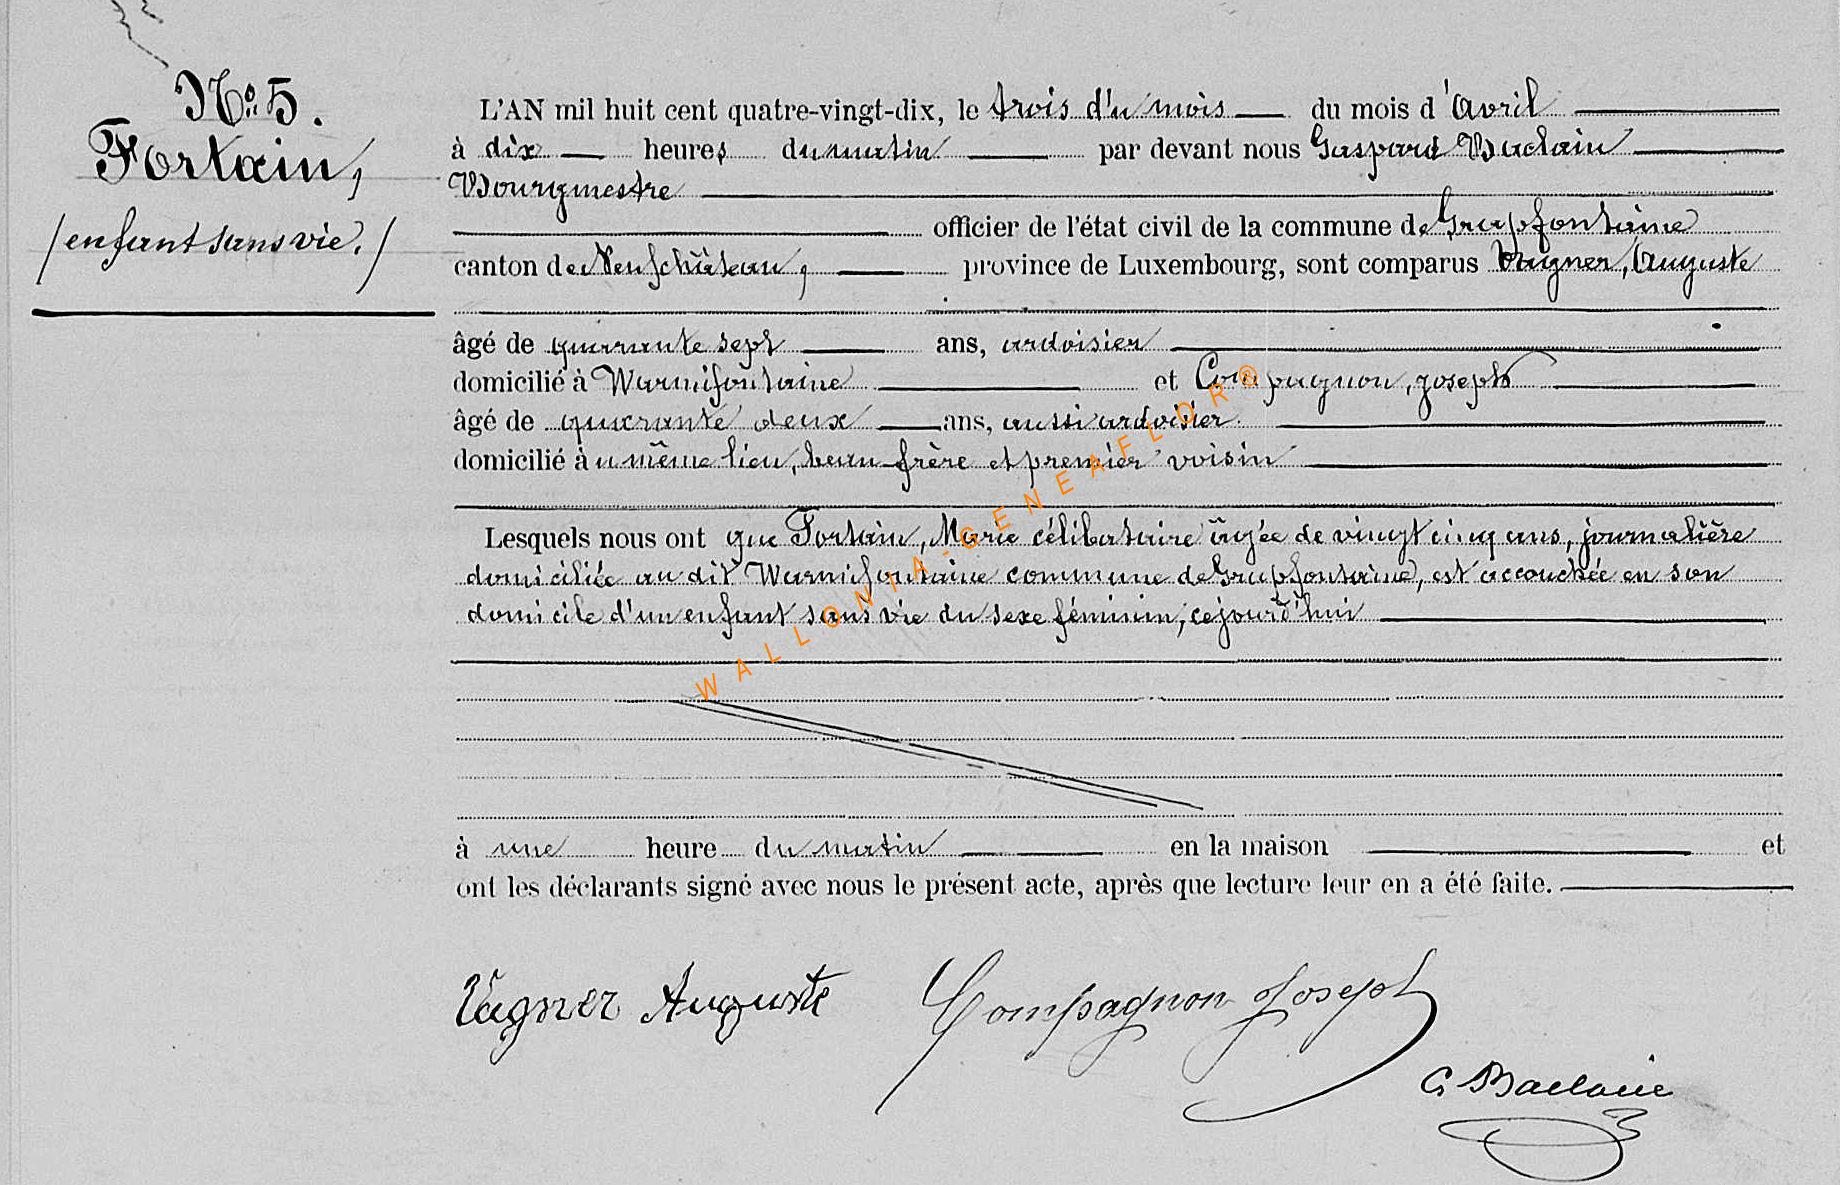 No 5.
Fortain,
/enfant sans vie./
L'AN mil huit cent quatre-vingt-dix, le trois d'u mois du mois d'Avril
à dix heures du matin par devant nous Gaspard Baclain
Bourgmestre
officier de l'état civil de la commune de Grapfontaine
canton de Neufchâteau, province de Luxembourg, sont comparus Vagner, Auguste
âgé de quarante sept ans, ardoisier
domicilié à Warmifontaine et Compagnon, joseph
âgé de quarante deux ans, aussi ardoisier.
domicilié au même lieu, beau frère et premier voisin
Lesquels nous ont que Fortain, Marie célibataire âgée de vingt cinq ans, journalière
domiciliée au dit Warmifontaine commune de Grapfontaine, est accouchée en son
domicile d'un enfant sans vie du sexe féminin, cejourd'hui
à une heure du matin en la maison et
ont les déclarants signé avec nous le présent acte, après que lecture leur en a été faite.
Vagner Auguste Compagnon Joseph
G Baclain
WALLONIA-GENEAFLOR®